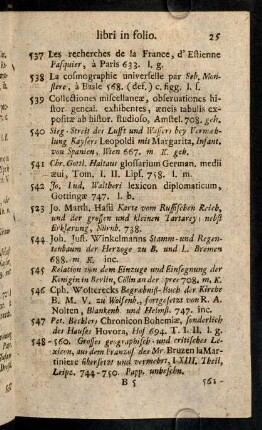 libri in folio. 25
537 Les recherches de la France, d'Estienne
Pasquier, à Paris 633. l. g.
538 La cosmographie universelle par Seb. Mon-
stere, à Basle 568. (def.) c. figg. l. s.
539 Collectiones miscellaneæ, observationes hi-
stor. geneal. exhibentes, æneis tabulis ex-
positæ ab histor. studioso, Amstel. 708. geh.
540 Sieg-Streit der Lufft und Wassers bey Vermeh-
lung Kaysers Leopoldi mit Margarita, Infant.
von Spanien, Wien 667. m. K. geh.
541 Chr. Gottl. Haltaus glossarium German. medii
æui, Tom. I. II. Lips. 758. l. m.
542 Jo. Lud. Waltheri lexicon diplomaticum,
Gottingæ 747. l. b.
523 Jo. Matth. Hasii Karte vom Rußischen Reich,
und der grossen und kleinen Tartarey; nebst
Erklærung, Nürnb. 738.
544 Joh. Just. Winkelmanns Stamm- und Regen-
tenbaum der Herzoge zu B. und L. Bremen
688. m. K. inc.
545 Relation von dem Einzuge und Einsegnung der
Königin in Berlin, Cölln an der Spree 708. m. K.
546 Cph. Wolterecks Begræbniß-Buch der Kirche
B. M. V. zu Wolfenb., fortgesetzt von R. A.
Nolten, Blankenb. und Helmst. 747. inc.
547 Pet. Beckler, Chronicon Bohemiæ, sonderlich
des Hauses Hovora, Hof 694. T. I. II. l. g.
548-560. Grosses geographisch- und critisches Le-
xicon, aus dem Französ. des Mr. Bruzen la Mar-
tiniere übersetzt und vermehrt, I-XIII. Theil,
Leipz. 744-750. Papp. unbeschn.
B 5 561-